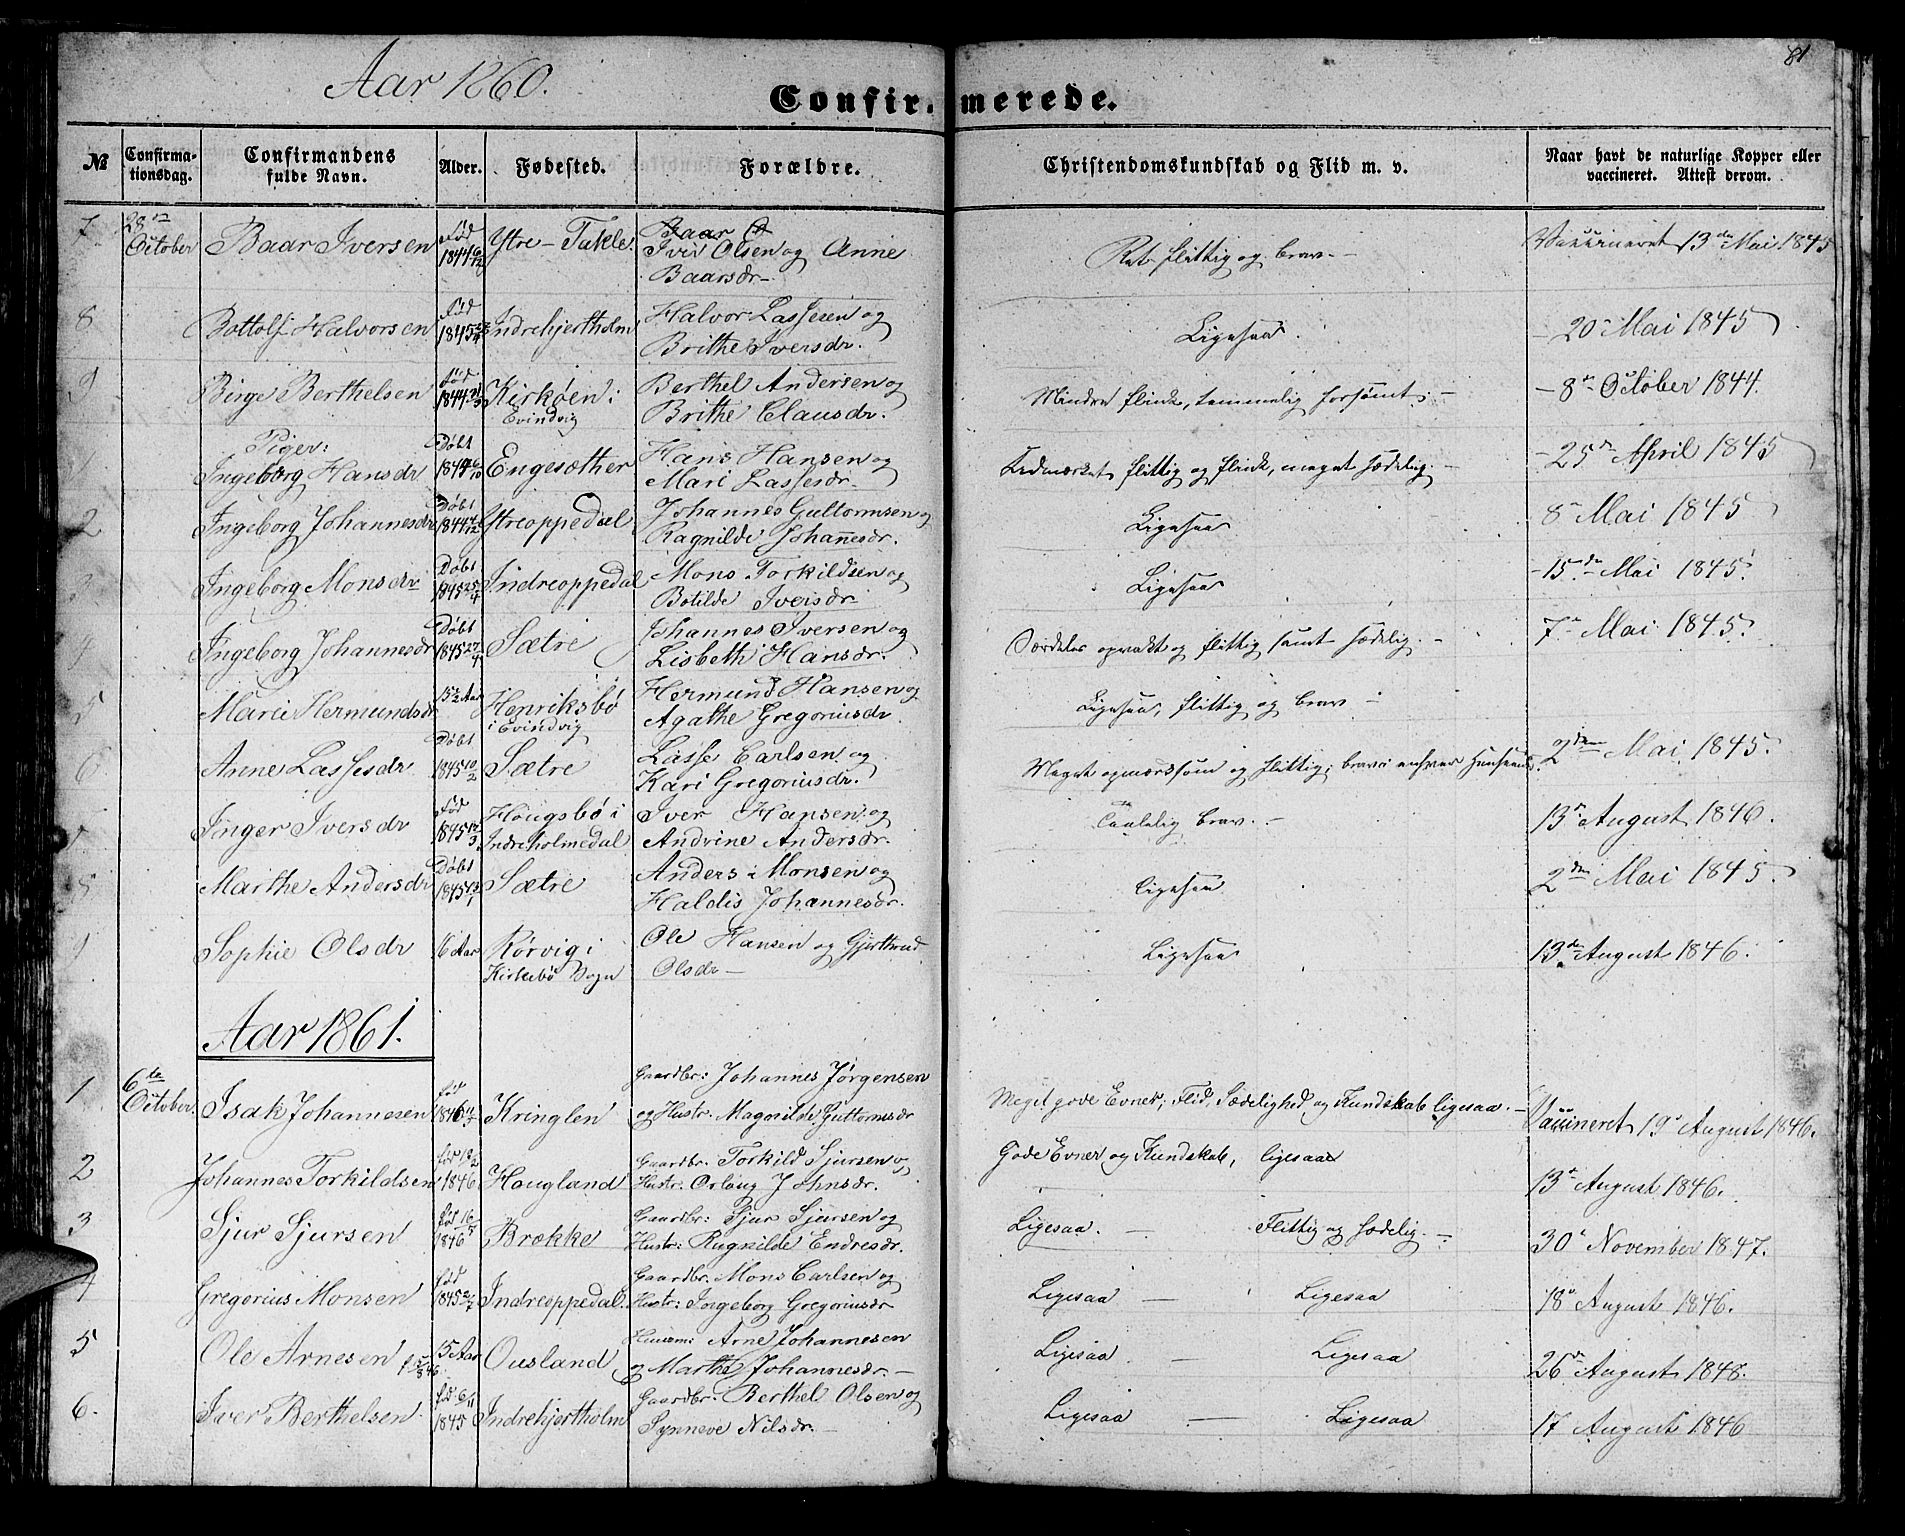 81
Aar 1860.
Confirmerede.
№ Confirma-tionsdag. Confirmandens fulde Navn. Alder. Fødested. Forældre. Christendomskundskab og Flid m. v. Naar havt de naturlige Kopper eller vaccineret. Attest derom.
7 28de October Baar Iversen Fød 1844 Ytre-Takle Iver Olsen og Anne Baarsdr Ret flittig og brav. Vaccineret 13de Mai 1845
8 Bottolf Halvorsen Fød 1845 Indrehjertholm Halvor Lassesen og Brithe Iversdr. Ligesaa. 20 Mai 1845
9 Birge Berthelsen Fød 1844 Kirkøen i Evindvig Berthel Andersen og Brithe Clausdr. Mindre flink, temmelig forsømt. 8de October 1844.
Piger:
1 Ingeborg Hansdr. Døbt 1844 Engesæther Hans Hansen og Mari Lassesdr. Udmærket flittig og flink, meget sædelig. 25de April 1845
2 Ingeborg Johannesdr Døbt 1844 Ytreoppedal Johannes Guttomsen og Ragnilde Johannesdr. Ligesaa 8 Mai 1845
3 Ingeborg Monsdr Døbt 1845 25/4 Indreoppedal Mons Torkildsen og Botilde Iversdr Ligesaa 15de Mai 1845.
4 Ingeborg Johannesdr Døbt 1845 27/4 Sætre Johannes Iversen og Lisbeth Hansdr. Særdeles opvakt og flittig samt sædelig. 7de Mai 1845.
5 Marei Hermundsdr 15½ Aar Henriksbø i Evindvig Hermund Hansen og Agathe Gregoriusdr. Ligesaa, flittig og brav
6 Anne Lassesdr Døbt 1845 10/2 Sætre Lasse Carlsen og Kari Gregoriusdr. Meget opmærksom og flittig; brav i enhver Henseende. 2den Mai 1845.
Inger Iversdr Fød 1845 12/3 Hougsbø i Indreholmedal Iver Hansen og Andrine Andersdr. Taalelig brav. 13de August 1846.
Marthe Andersdr Døbt 1845 Sætre Anders Monsen og Haldis Johannesdr. Ligesaa 2den Mai 1845.
9 Sophie Olsdr 16 Aar Rørvig i Kirkebø Sogn Ole Hansen og Gjertrud Olsdr Ligesaa 13de August 1846.
Aar 1861.
1 6te October. Isak Johannesen fød 1846 11/5 Kringlen Gaardbr: Johannes Jørgensen og Hustr. Magnilde Guttomsdr Meget gode Evner, Flid, Sædelighed og Kundskab ligesaa. Vaccineret 19de August 1846.
2 Johannes Torkildsen fød 19/2 1846 Hougland Gaardbr. Torkild Sjursen og Hustr. Orlaug Johnsdr. Gode Evner og Kundskab, ligesaa 13de August 1846.
3 Sjur Sjursen fød 16/5 1846 Brække Gaardbr: Sjur Sjursen og Hustr: Ragnilde Endresdr. Ligesaa. Flittig og sædelig. 30de November 1847.
4 Gregorius Monsen fød 1845 2/7 Indreoppedal. Gaardbr. Mons Carlsen og Hustr: Ingeborg Gregoriusdr Ligesaa Ligesaa 18de August 1846.
5 Ole Arnesen 15 Aar Ousland Huusm: Arne Johannesen og Marthe Johannesdr. Ligesaa Ligesaa 26de August 1848.
6. Iver Berthelsen fød 6/11 1845 Indrehjertholm Gaardbr: Berthel Olsen og Synneve Nilsdr. Ligesaa Ligesaa 17 August 1846